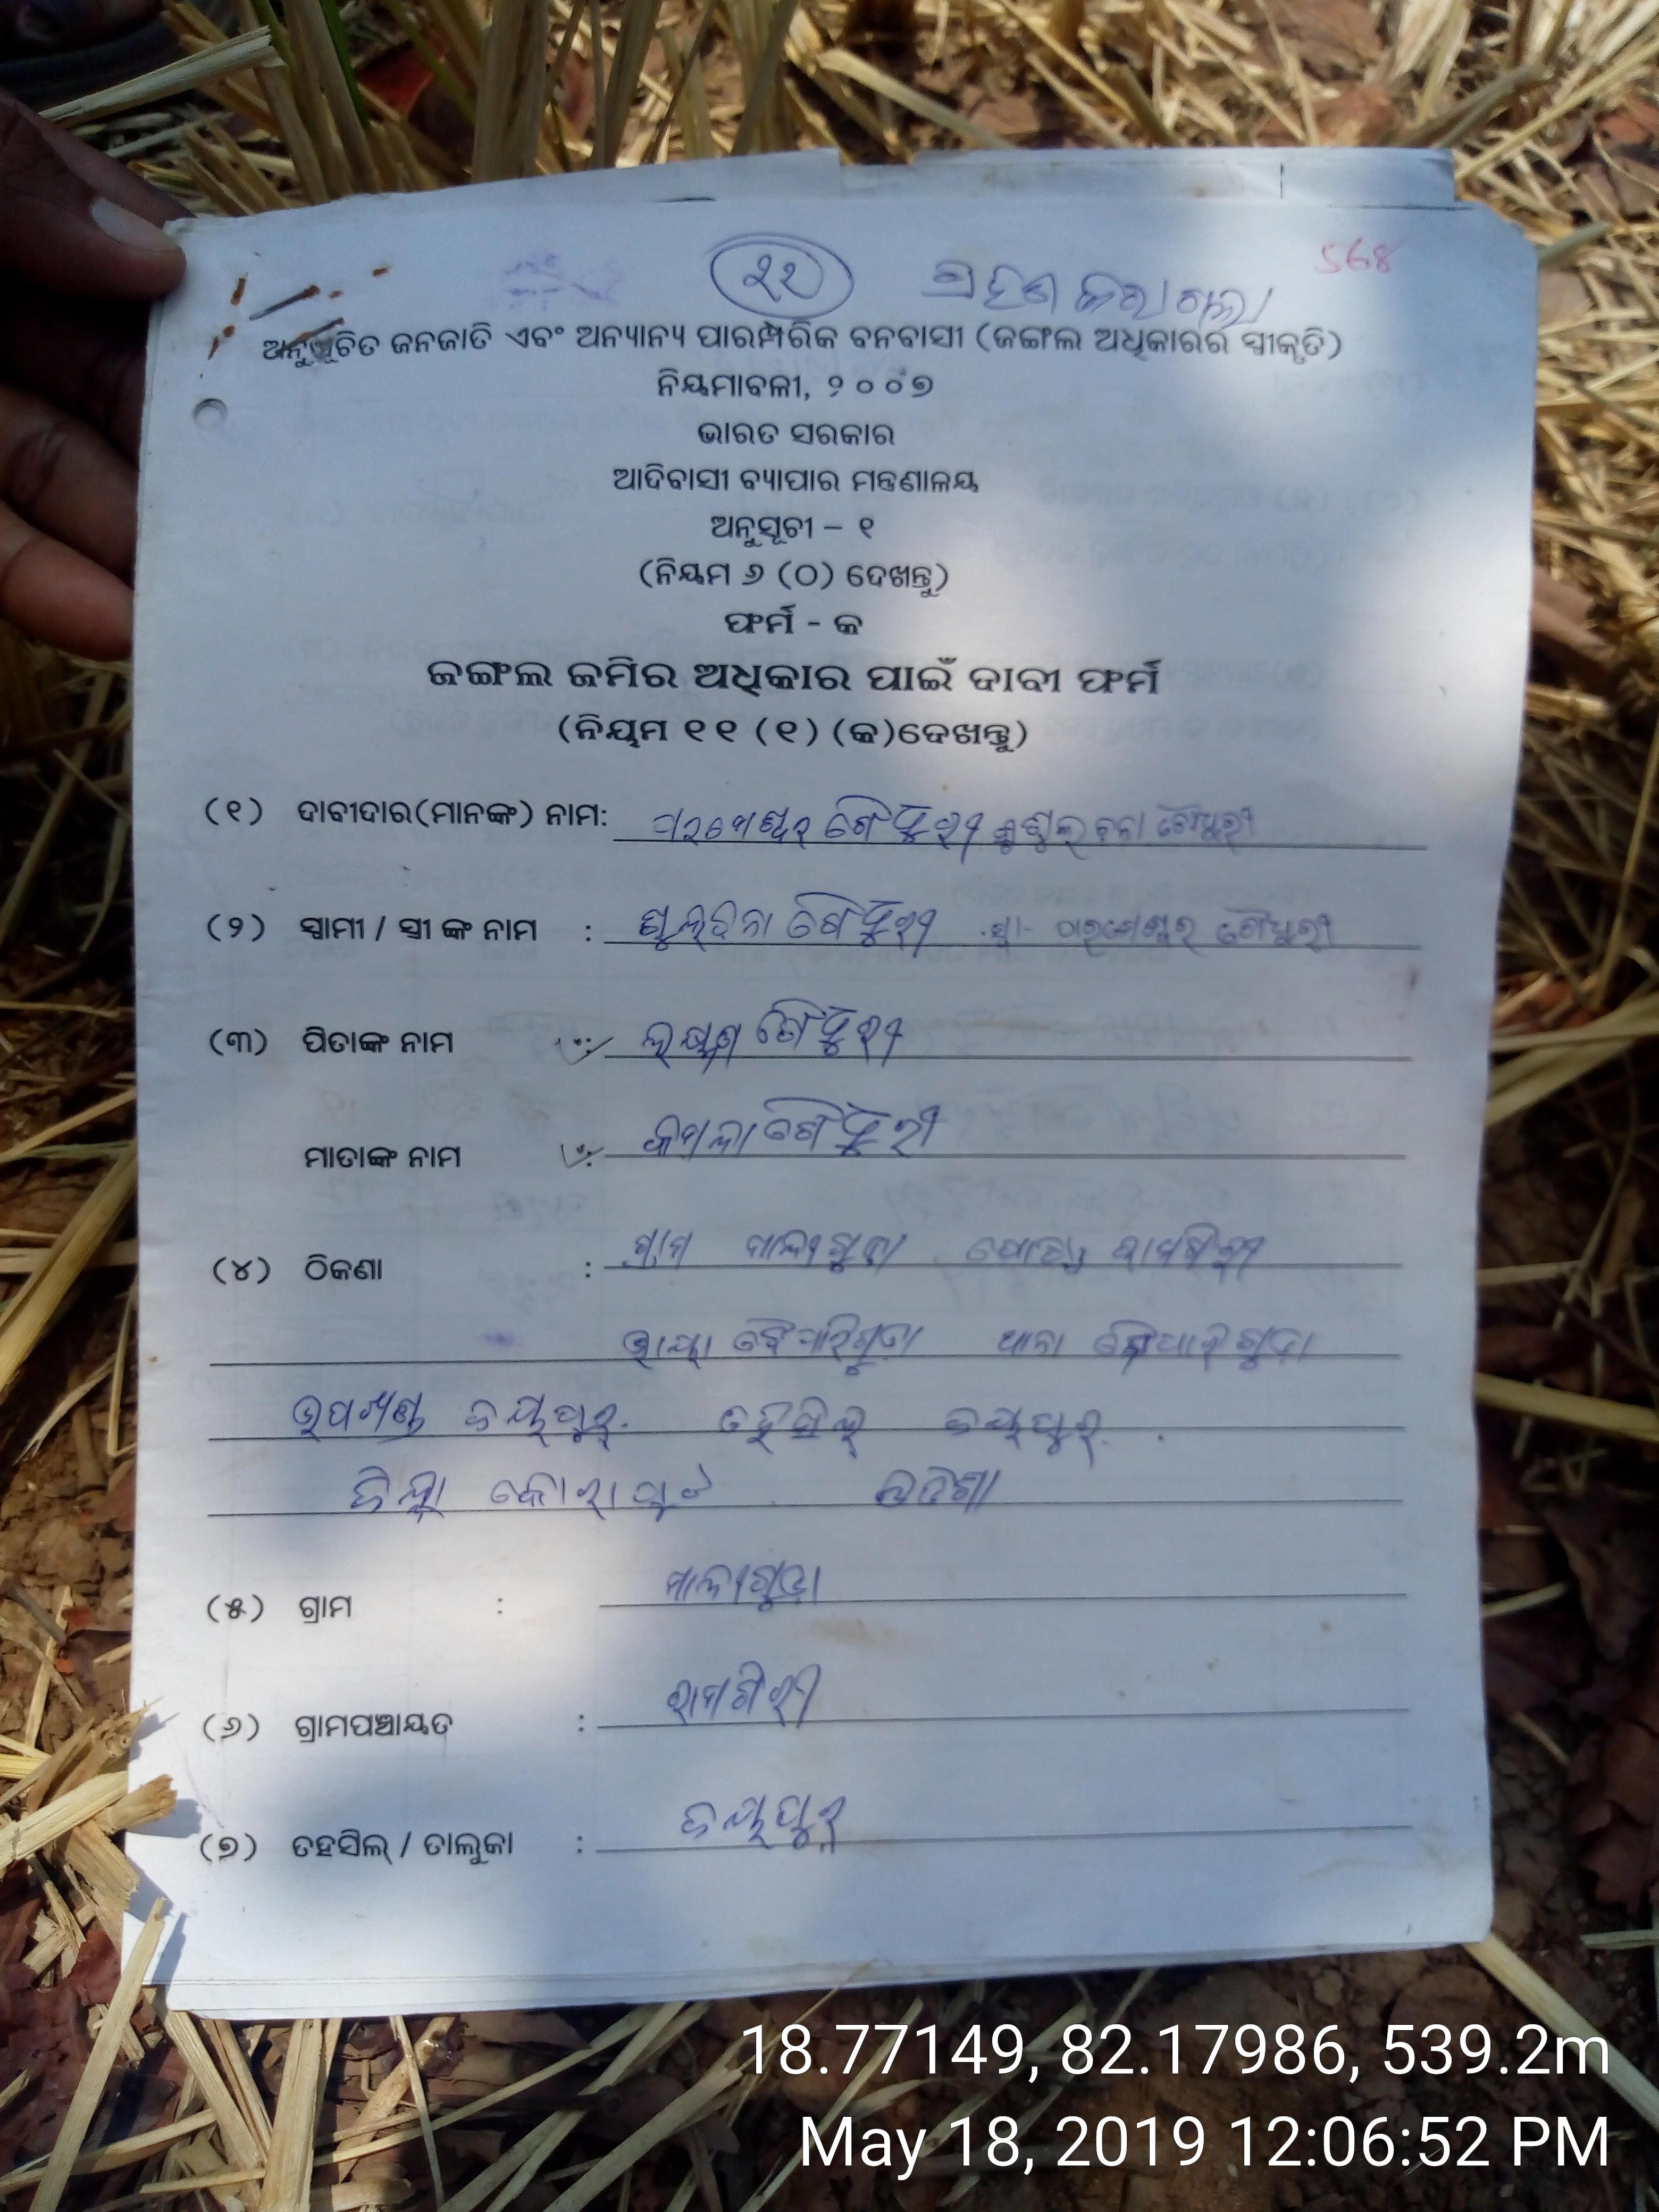 ୨୨ ଗ୍ରହଣ କରାଗଲା 568
ଅନୁସୂଚିତ ଜନଜାତି ଏବଂ ଅନ୍ୟାନ୍ୟ ପାରମ୍ପରିକ ବନବାସୀ (ଜଙ୍ଗଲ ଅଧିକାରର ସ୍ୱୀକୃତି)
ନିୟମାବଳୀ, ୨୦୦୭
ଭାରତ ସରକାର
ଆଦିବାସୀ ବ୍ୟାପାର ମନ୍ତ୍ରଣାଳୟ
ଅନୁସୂଚୀ – ୧
(ନିୟମ ୬ (ଠ) ଦେଖନ୍ତୁ)
ଫର୍ମ - କ
ଜଙ୍ଗଲ ଜମିର ଅଧିକାର ପାଇଁ ଦାବୀ ଫର୍ମ
(ନିୟମ ୧୧ (୧) (କ)ଦେଖନ୍ତୁ)
(୧) ଦାବୀଦାର(ମାନଙ୍କ) ନାମ: ଚୌଧୁରୀ
(୨) ସ୍ୱାମୀ / ସ୍ତ୍ରୀ ଙ୍କ ନାମ : ଚୌଧୁରୀ
(୩) ପିତାଙ୍କ ନାମ : ଲକ୍ଷ୍ମଣ ଚୌଧୁରୀ
ମାତାଙ୍କ ନାମ : କମଳା ଚୌଧୁରୀ
(୪) ଠିକଣା : ଗ୍ରାମ ମାଳୀଗୁଡା ପୋଷ୍ଟ ରାମଗିରୀ
ଭାୟା ବୈପାରିଗୁଡା ଥାନା ବୈପାରିଗୁଡା
ଉପଖଣ୍ଡ ଜୟପୁର ତହସିଲ୍ ଜୟପୁର
ଜିଲ୍ଲା କୋରାପୁଟ ଓଡିଶା
(୫) ଗ୍ରାମ : ମାଳୀଗୁଡା
(୬) ଗ୍ରାମପଞ୍ଚାୟତ : ରାମଗିରୀ
(୭) ତହସିଲ୍ / ତାଲୁକା : ଜୟପୁର
18.77149, 82.17986, 539.2m
May 18, 2019 12:06:52 PM